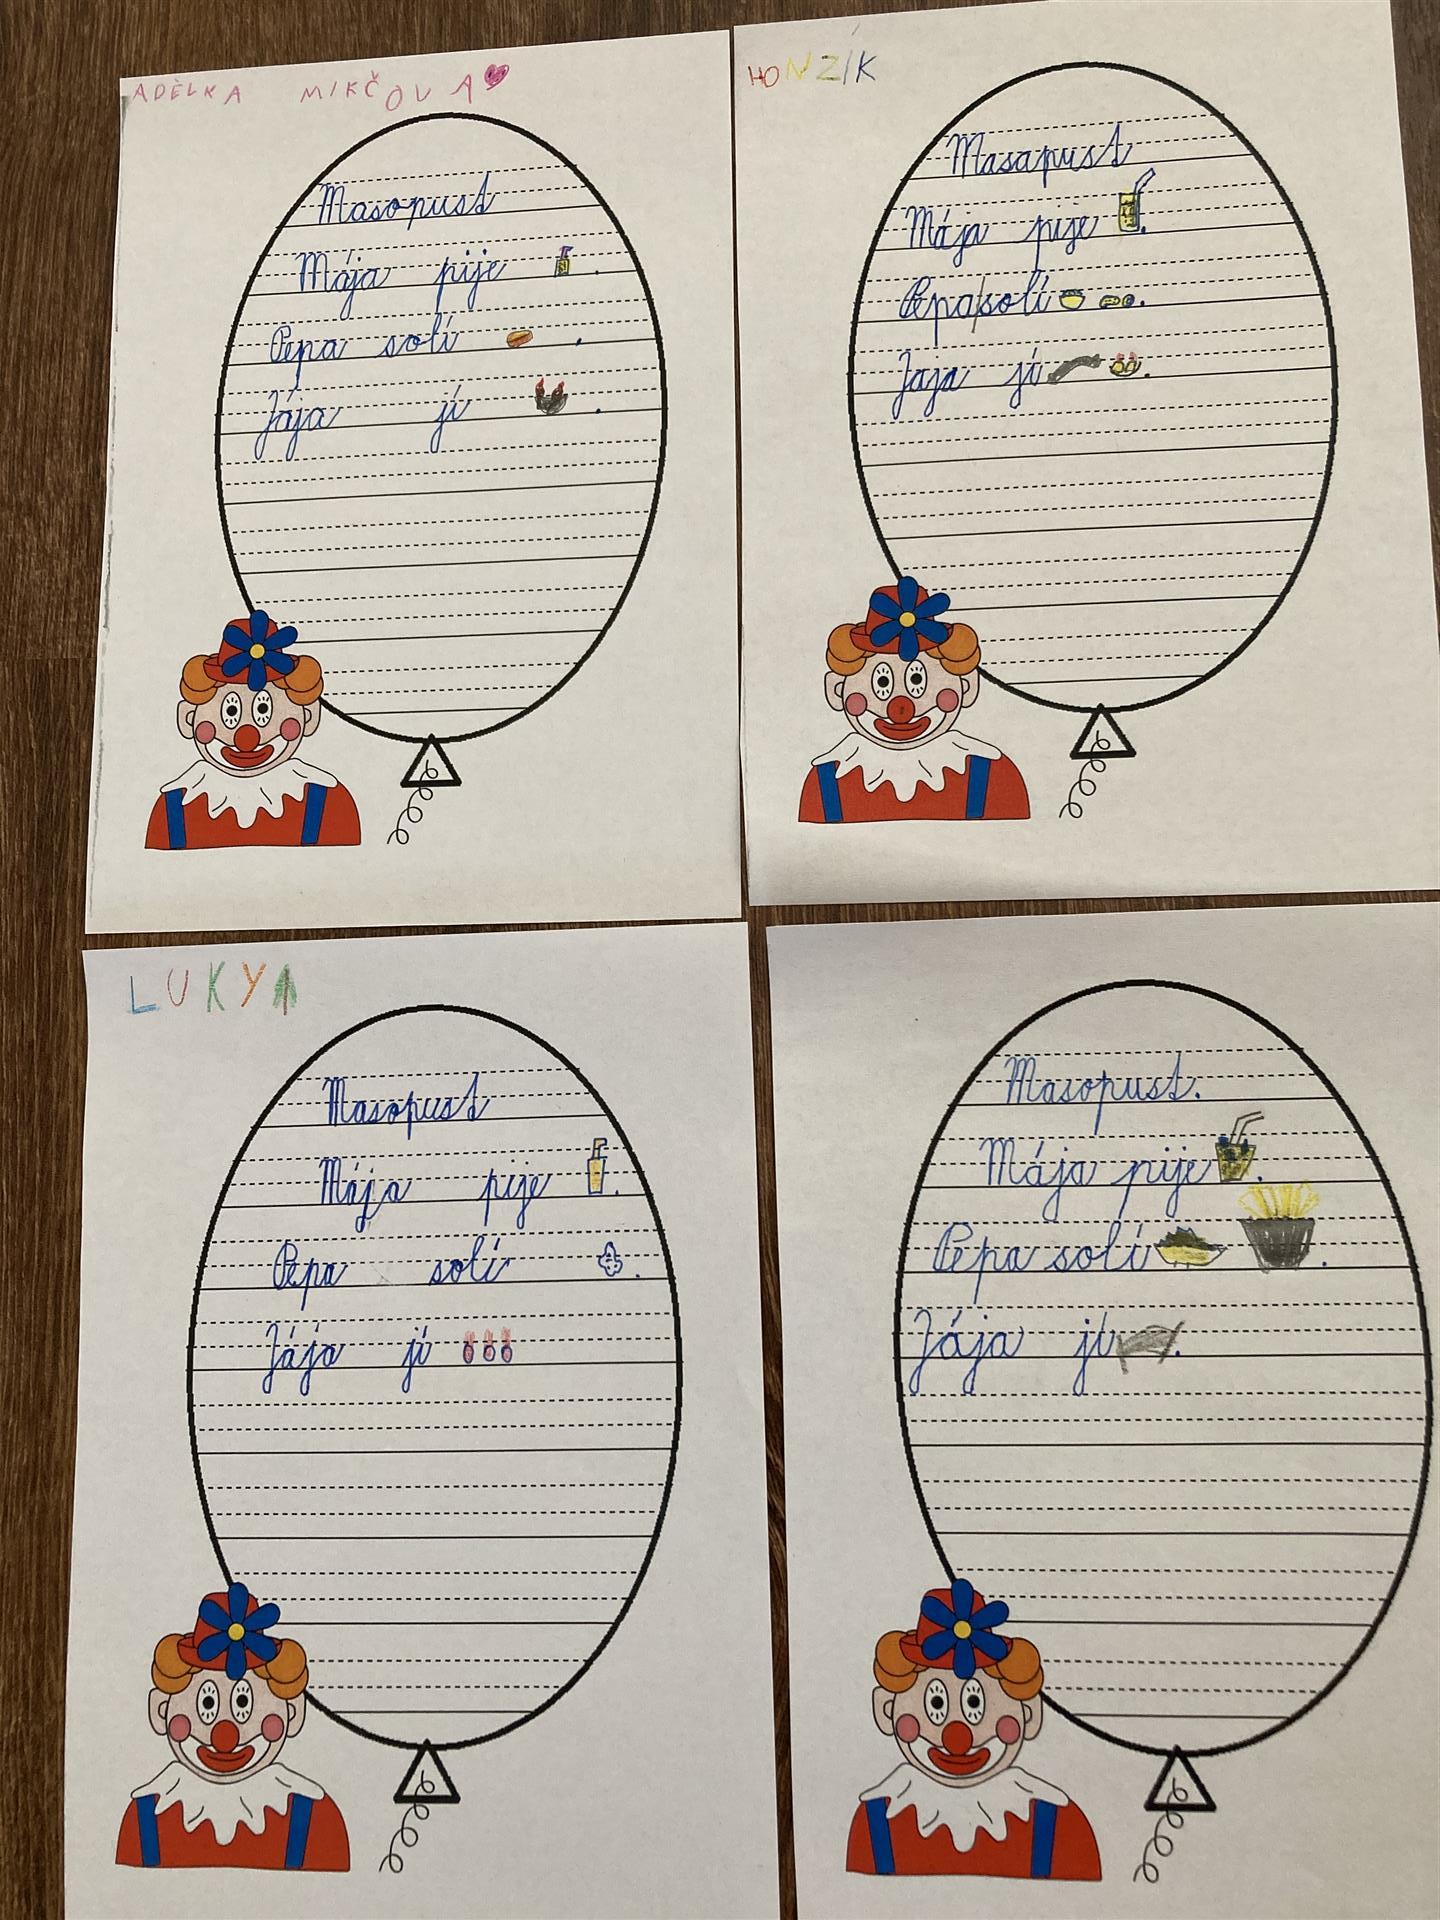 ADÉLKA MIKČOVA
Masopust
Mája pije .
Pepa solí .
Jája jí .
HONZÍK
Masapust
Mája pije .
Pepa solí .
Jaja jí .
LUKY
Masopust
Mája pije .
Pepa solí .
Jája jí
Masopust.
Mája pije .
Pepa solí .
Jája jí .